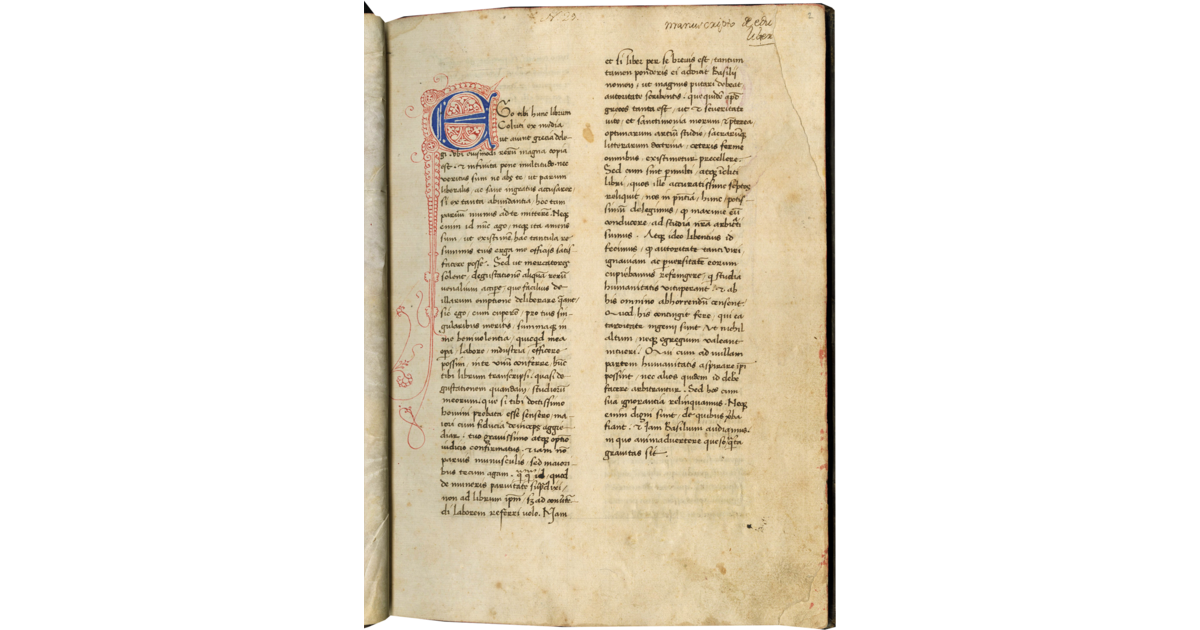 manuscripto
liber
Ego tibi hunc librum
Coluci ex media
ut aiunt grecia dele-
gi. ubi eiusmodi rerū magna copia
est. & infinita pene multitudo. nec
veritus sum ne abs te, ut parum
liberalis, ac sane ingratus accusarer
si ex tanta abundantia hoc tam
parūm munus ad te mitterē. Neqȝ
enim id nūc ago, neqȝ ita amens
sum, ut existimē hac tantula re
summis tuis erga me officiis satis-
facere posse. Sed ut mercatores
solent, degustationē aliquā rerū
venalium accipe, quo facilius de
illarum emptione deliberare queant,
sic ego, cum cuperem, pro tuis sin-
gularibus meritis, summaqȝ in
me benivolentia, quicqd mea
opa, labore, industria, efficere
possim, in te unū conferre, hūc
tibi librum transcripsi, quasi de-
gustationem quandam studiorū
meorum. que si tibi doctissimo
homini probata esse sensero, ma-
iora cum fiducia deinceps aggre-
diar, tuo gravissimo atqȝ optīo
iudicio confirmatus. & iam nō
parvis munusculis, sed maiori-
bus tecum agam. qȝ qȝ id, quod
de muneris parvitate supdixi,
non ad librum ipm sȝ ad conūte-
di laborem referri volo. Nam
et si liber per se brevis est, tantum
tamen ponderis ei addidit Basilij
nomen, ut magnus putari debeat
autoritate scribentis. que quidē apd
grecos tanta est, ut & severitate
vite, et sanctimonia morum & pterea
optimarum artiū studio, sacrarūqȝ
litterarum doctrina, ceteris ferme
omnibus existimetur precellere.
Sed cum sint pmulti, atqȝ īclīti
libri, quos ille accuratissime scptos
reliquit, nos in pntia, hunc potis-
simū delegimus, qȝ maxime eū
conducere ad studia nrā arbitrti
sumus. Atqȝ ideo libentius id
fecimus, qȝ autoritate tanti viri,
ignaviam ac pversitatē eorum
cupiebamus refringere, q studia
humanitatis vituperant, & ab
his omnino abhorrendū censent.
Quod his contingit fere, qui ea
tarditate ingenii sunt, ut nichil
altum, neqȝ egregium valeant
intueri. Qui cum ad nullam
partem humanitatis aspirare ipi
possint, nec alios quidem id debe
facere arbitrantur. Sed hos cum
sua ignorantia relinquamus. Neqȝ
enim digni sunt, de quibus vba
fiant. & Iam Basilium audiamus.
in quo animadvertere queso qta
gravitas sit.